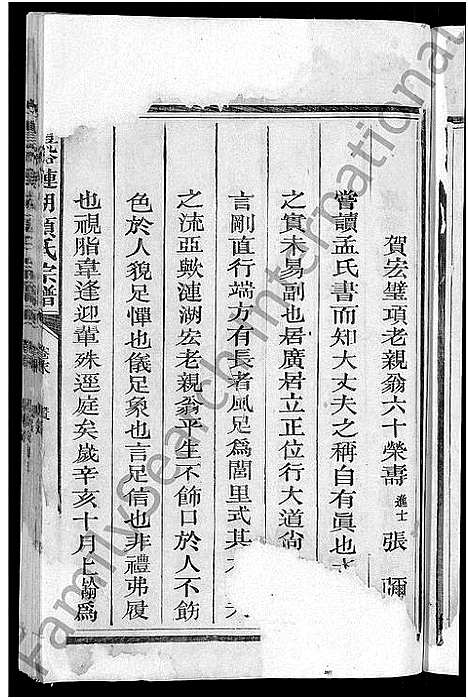 賀宏璧項老親翁六十榮壽 進士 張
嘗讀孟氏書而知大丈夫之稱自有眞也
之實未易副也居廣居立正位行大道
言剛直行端方有長者風足爲閭里式其
之流亞歟漣湖宏老親翁平生不飾口於人不飭
色於人貌足憚也儀足象也言足信也非禮弗履
也視脂韋逢迎輩殊逕庭矣歲辛亥十月上澣爲
漣湖項氏宗譜
FamilySearch International